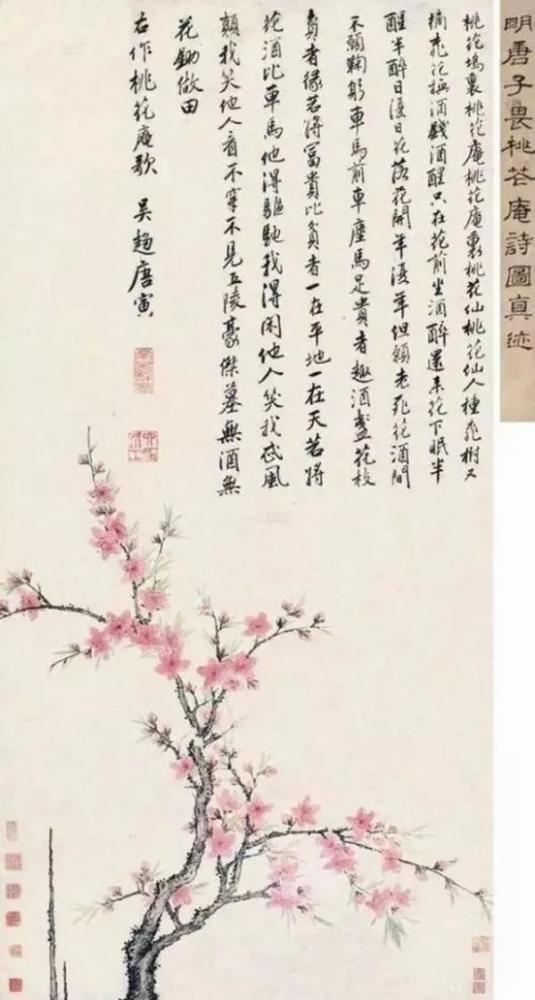 明唐子畏桃花庵詩圖真迹
桃花塢裏桃花庵桃花庵裏桃花仙桃花仙人種桃樹又
摘桃花換酒錢酒醒只在花前坐酒醉還来花下眠半
醒半醉日復日花落花開年復年但願老死花酒間
不願鞠躬車馬前車塵馬足貴者趣酒盞花枝
貧者緣若將冨貴比貧者一在平地一在天若將
花酒比車馬他得驅馳我得閑他人笑我忒風
顛我笑他人看不穿不見五陵豪傑墓無酒無
花鋤做田
右作桃花庵歌 吴趨唐寅